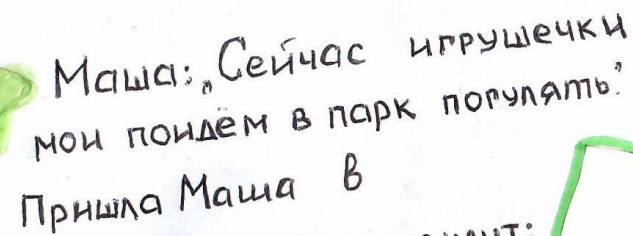 Маша: „Сейчас игрушечки
мои поидём в парк погулять."
Пришла Маша в